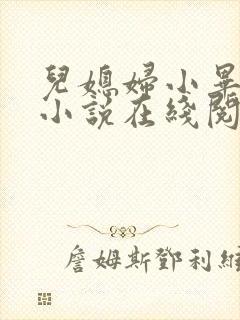 兒媳婦小畢
小說在綫閱
詹姆斯鄧利維